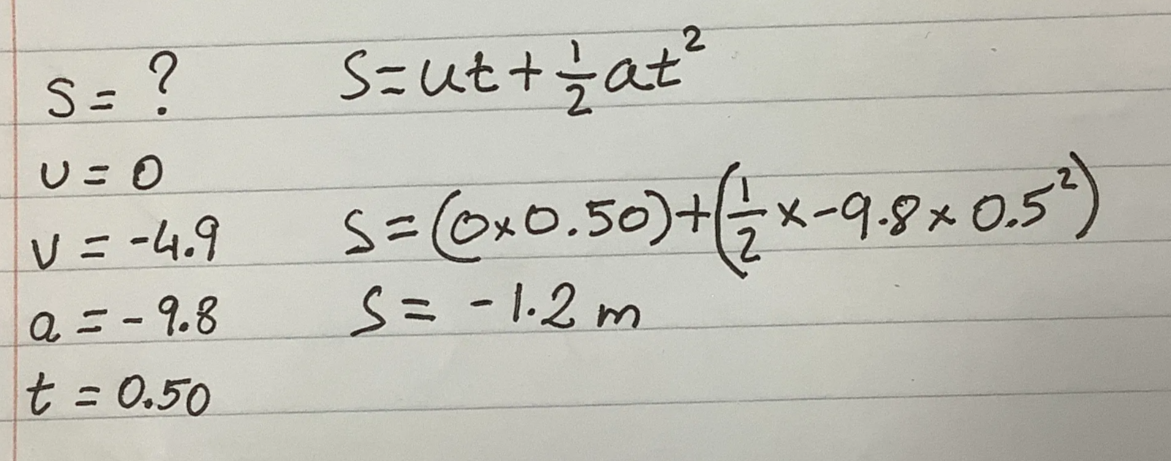 s = ?
u = 0
v = -4.9
a = -9.8
t = 0.50
s = ut + ½at²
s = (0 × 0.50) + (½ × -9.8 × 0.5²)
s = -1.2 m